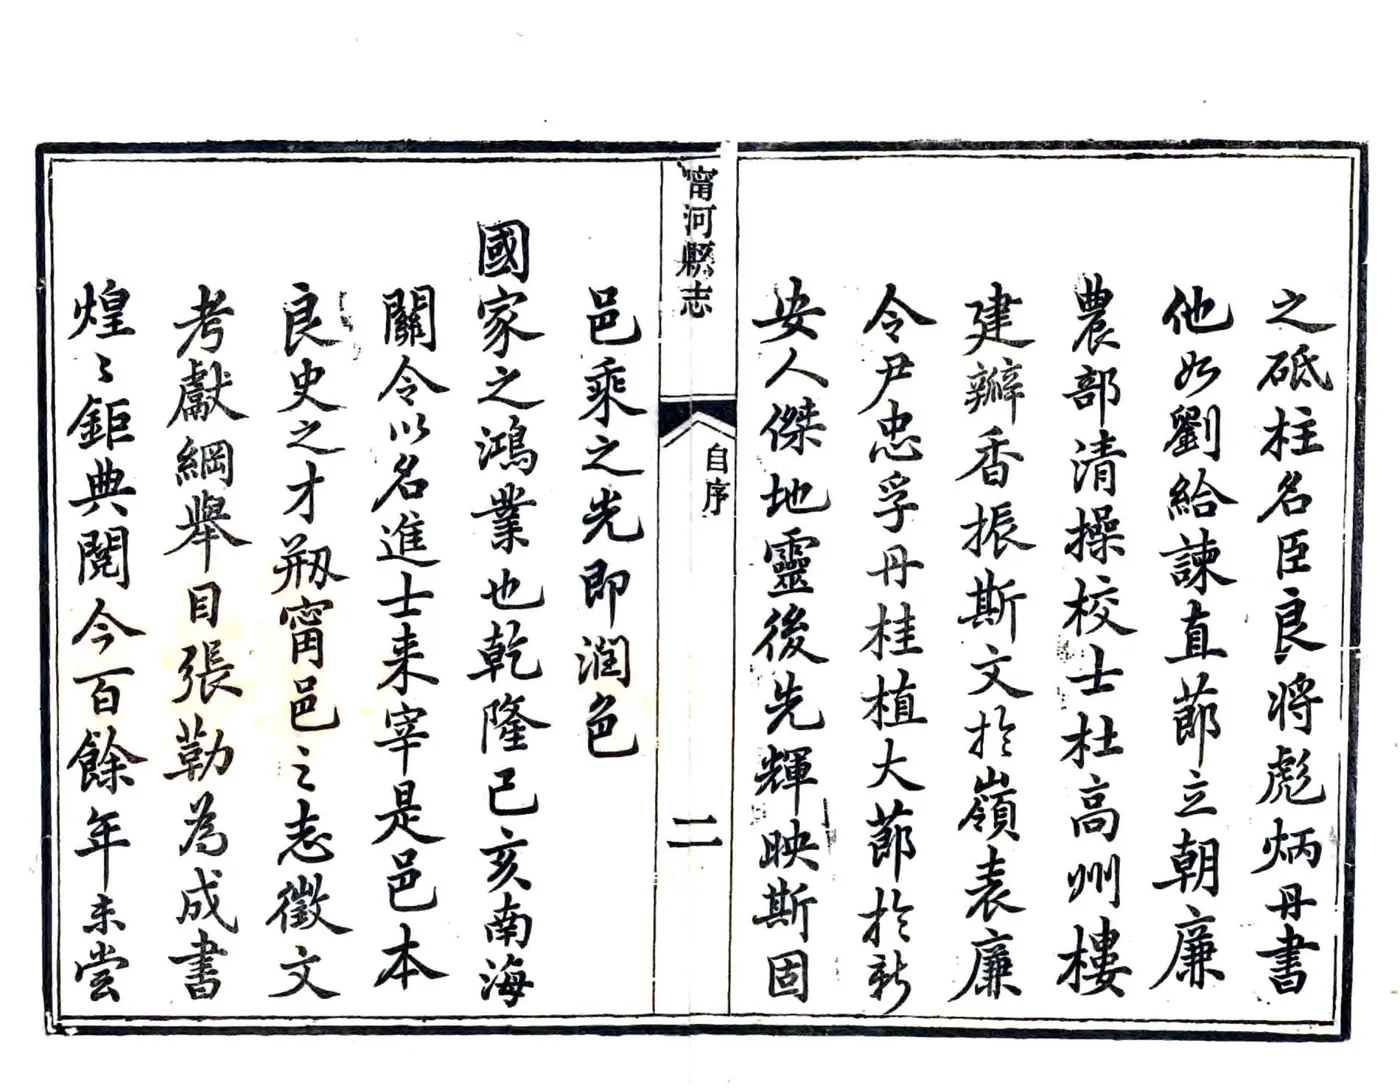 之砥柱名臣良將彪炳丹書
他如劉給諫直節立朝廉
農部清操校士杜高州樓
建瓣香振斯文於嶺表廉
令尹忠孚丹桂植大節於新
安人傑地靈後先輝映斯固
甯河縣志
自序
二
邑乘之光即潤色
國家之鴻業也乾隆己亥南海
關令以名進士来宰是邑本
良史之才剏甯邑之志徵文
考獻綱舉目張勒為成書
煌〻鉅典閱今百餘年未嘗